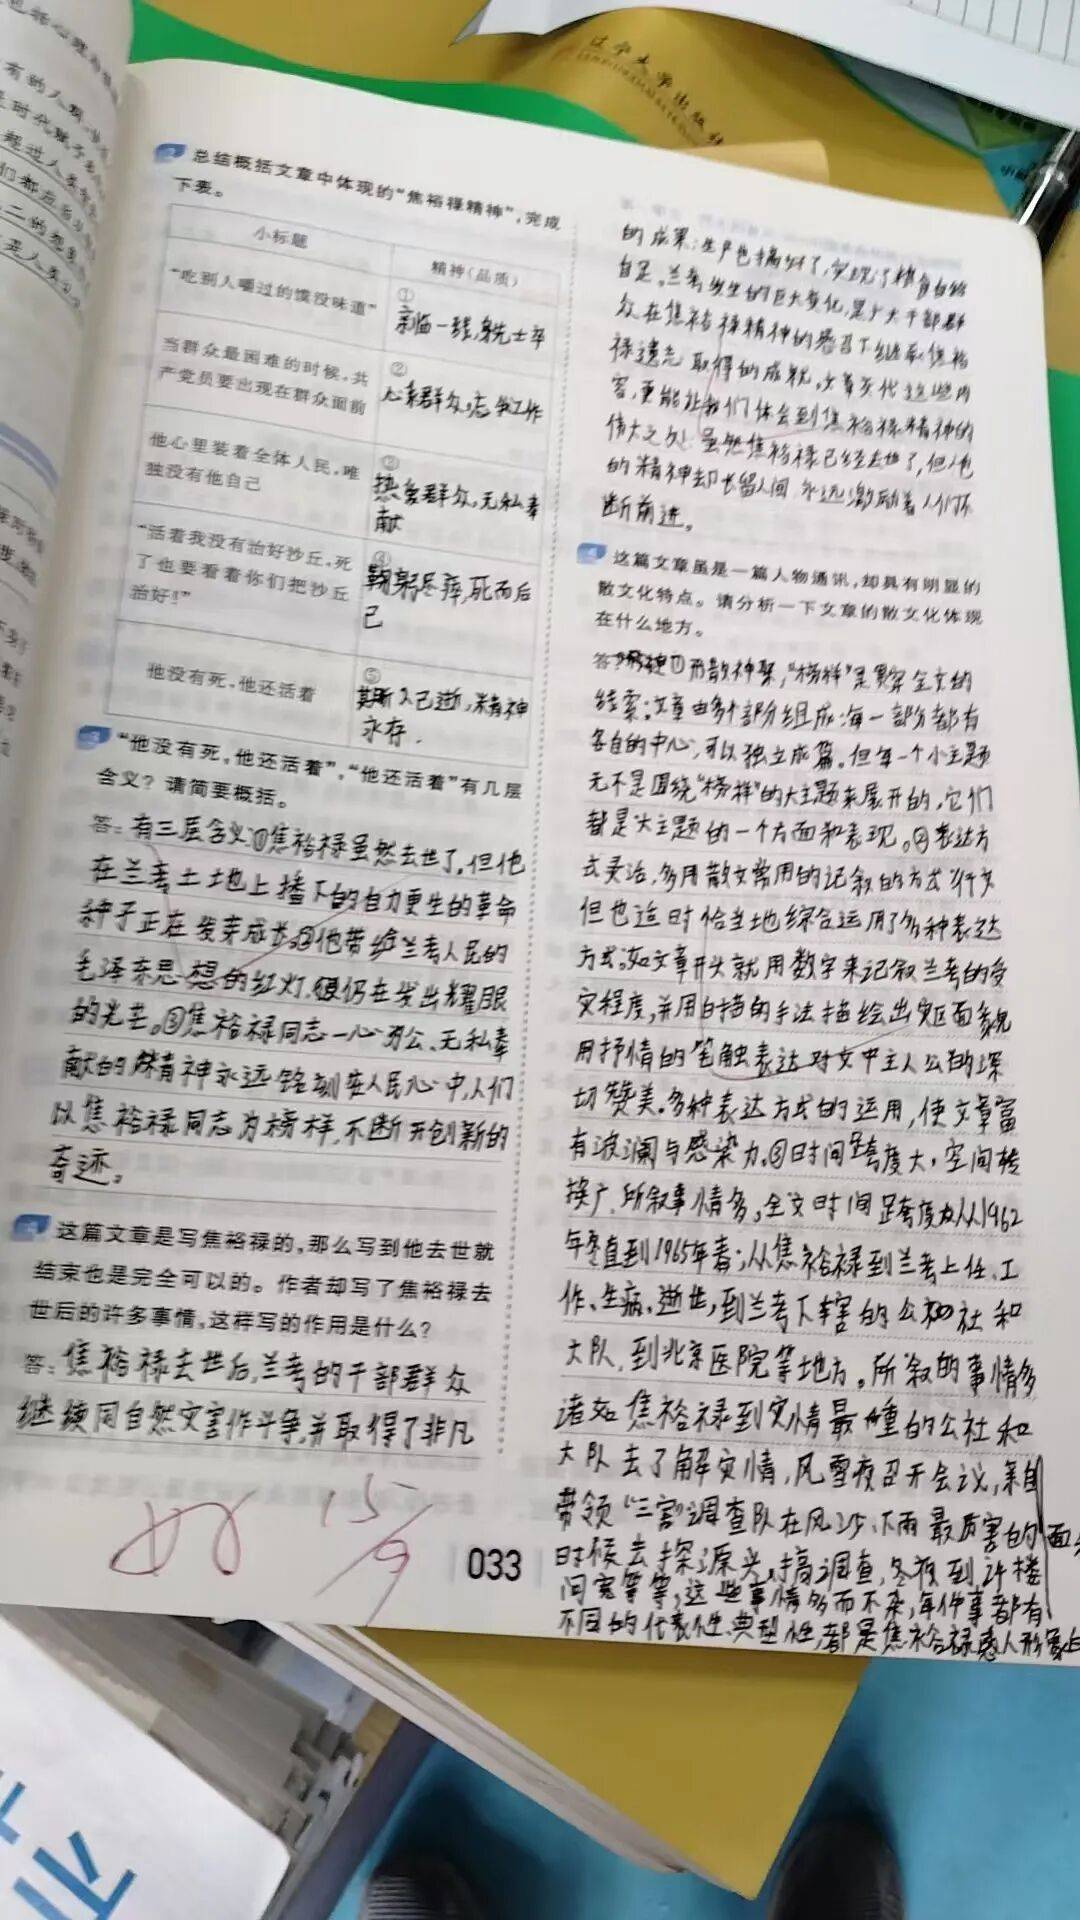 辽宁大学出版社
总结概括文章中体现的“焦裕禄精神”,完成
下表。
小标题
精神(品质)
“吃别人嚼过的馍没味道”
①
亲临一线,身先士卒
当群众最困难的时候,共
产党员要出现在群众面前
②
心系群众,忘我工作
他心里装着全体人民,唯
独没有他自己
③
热爱群众,无私奉
献
“活着我没有治好沙丘,死
了也要看着你们把沙丘
治好!”
④
鞠躬尽瘁,死而后
已
他没有死,他还活着
⑤
斯人已逝,精神
永存.
“他没有死,他还活着”,“他还活着”有几层
含义?请简要概括。
答:有三层含义①焦裕禄虽然去世了,但他
在兰考土地上播下的自力更生的革命
种子正在发芽成长。②他带给兰考人民的
毛泽东思想的红灯,仍在发出耀眼
的光芒。③焦裕禄同志一心为公、无私奉
献的精神永远铭刻在人民心中,人们
以焦裕禄同志为榜样,不断开创新的
奇迹。
这篇文章是写焦裕禄的,那么写到他去世就
结束也是完全可以的。作者却写了焦裕禄去
世后的许多事情,这样写的作用是什么?
答:焦裕禄去世后,兰考的干部群众
继续同自然灾害作斗争,并取得了非凡
15/9
033
的成果;生产也搞好了,实现了粮食自给
自足。兰考发生的巨大变化,是广大干部群
众在焦裕禄精神的感召下继承焦裕
禄遗志取得的成就。文章交代这些内
容,更能让我们体会到焦裕禄精神的
伟大之处:虽然焦裕禄已经去世了,但他
的精神却长留人间,永远激励着人们不
断前进。
4 这篇文章虽是一篇人物通讯,却具有明显的
散文化特点。请分析一下文章的散文化体现
在什么地方。
答:①形散神聚,“榜样”是贯穿全文的
线索;文章由多个部分组成,每一部分都有
各自的中心,可以独立成篇。但每一个小主题
无不是围绕“榜样”的大主题来展开的,它们
都是大主题的一个方面和表现。②表达方
式灵活,多用散文常用的记叙的方式行文
但也适时恰当地综合运用了多种表达
方式。如文章开头就用数字来记叙兰考的受
灾程度,并用白描的手法描绘出灾区面貌
用抒情的笔触表达对文中主人公的深
切赞美。多种表达方式的运用,使文章富
有波澜与感染力。③时间跨度大,空间转
换广,所叙事情多,全文时间跨度从1962
年冬直到1965年春;从焦裕禄到兰考上任、工
作、生病、逝世,到兰考下辖的公社和
大队,到北京医院等地方。所叙的事情多
诸如焦裕禄到灾情最重的公社和
大队去了解灾情,风雪夜召开会议,亲自
带领“三害”调查队在风沙、下雨最厉害的
时候去探源头,搞调查,冬夜到许楼
问寒等等,这些事情多而不杂,每件事都有
不同的代表性、典型性,都是焦裕禄感人形象上
面